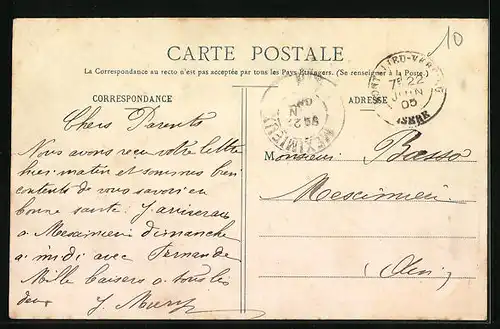 10
CARTE POSTALE
La Correspondance au recto n'est pas acceptée par tous les Pays Étrangers. (Se renseigner à la Poste.)
CORRESPONDANCE
ADRESSE
MONTALIEU-VERCIEU
22
JUIN
05
ISERE
MEXIMIEUX
Chers Parents
Nous avons reçu votre lettre
hier matin et sommes bien
contents de vous savoir en
bonne santé. J'arriverai
a Meximieu dimanche
a midi avec Fernande
Mille baisers a tous les
deux
J. Mury
Monsieur Basso
Meximieu
(Ain)